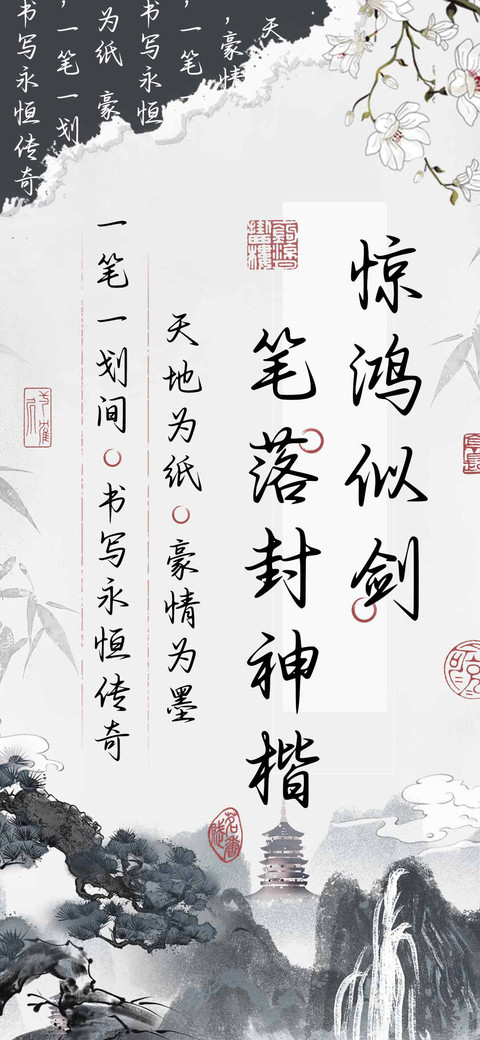 天
，豪情
，一笔
书写永恒
为纸 豪
，一笔一划
书写永恒传奇
惊鸿似剑
笔落封神楷
天地为纸 豪情为墨
一笔一划间 书写永恒传奇